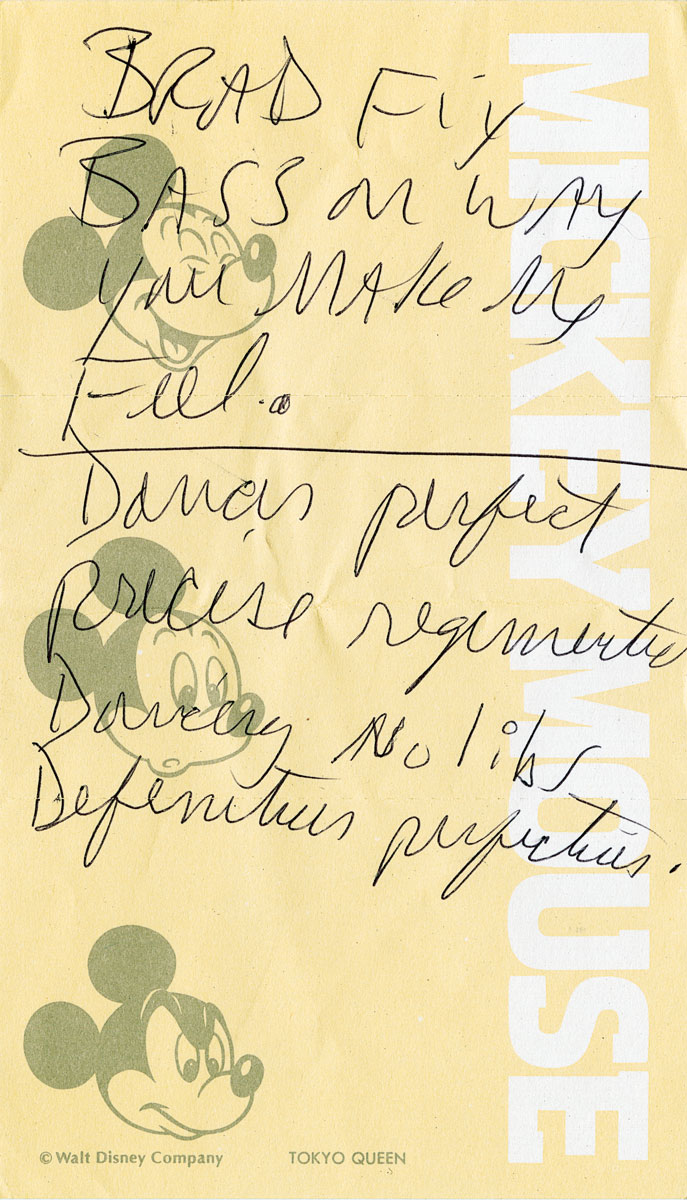 BRAD Fix
BASS on WAY
you MAKe Me
Feel.
Dancers perfect
precise regimented
Dancing No libs
perfections.
MICKEY MOUSE
© Walt Disney Company
TOKYO QUEEN